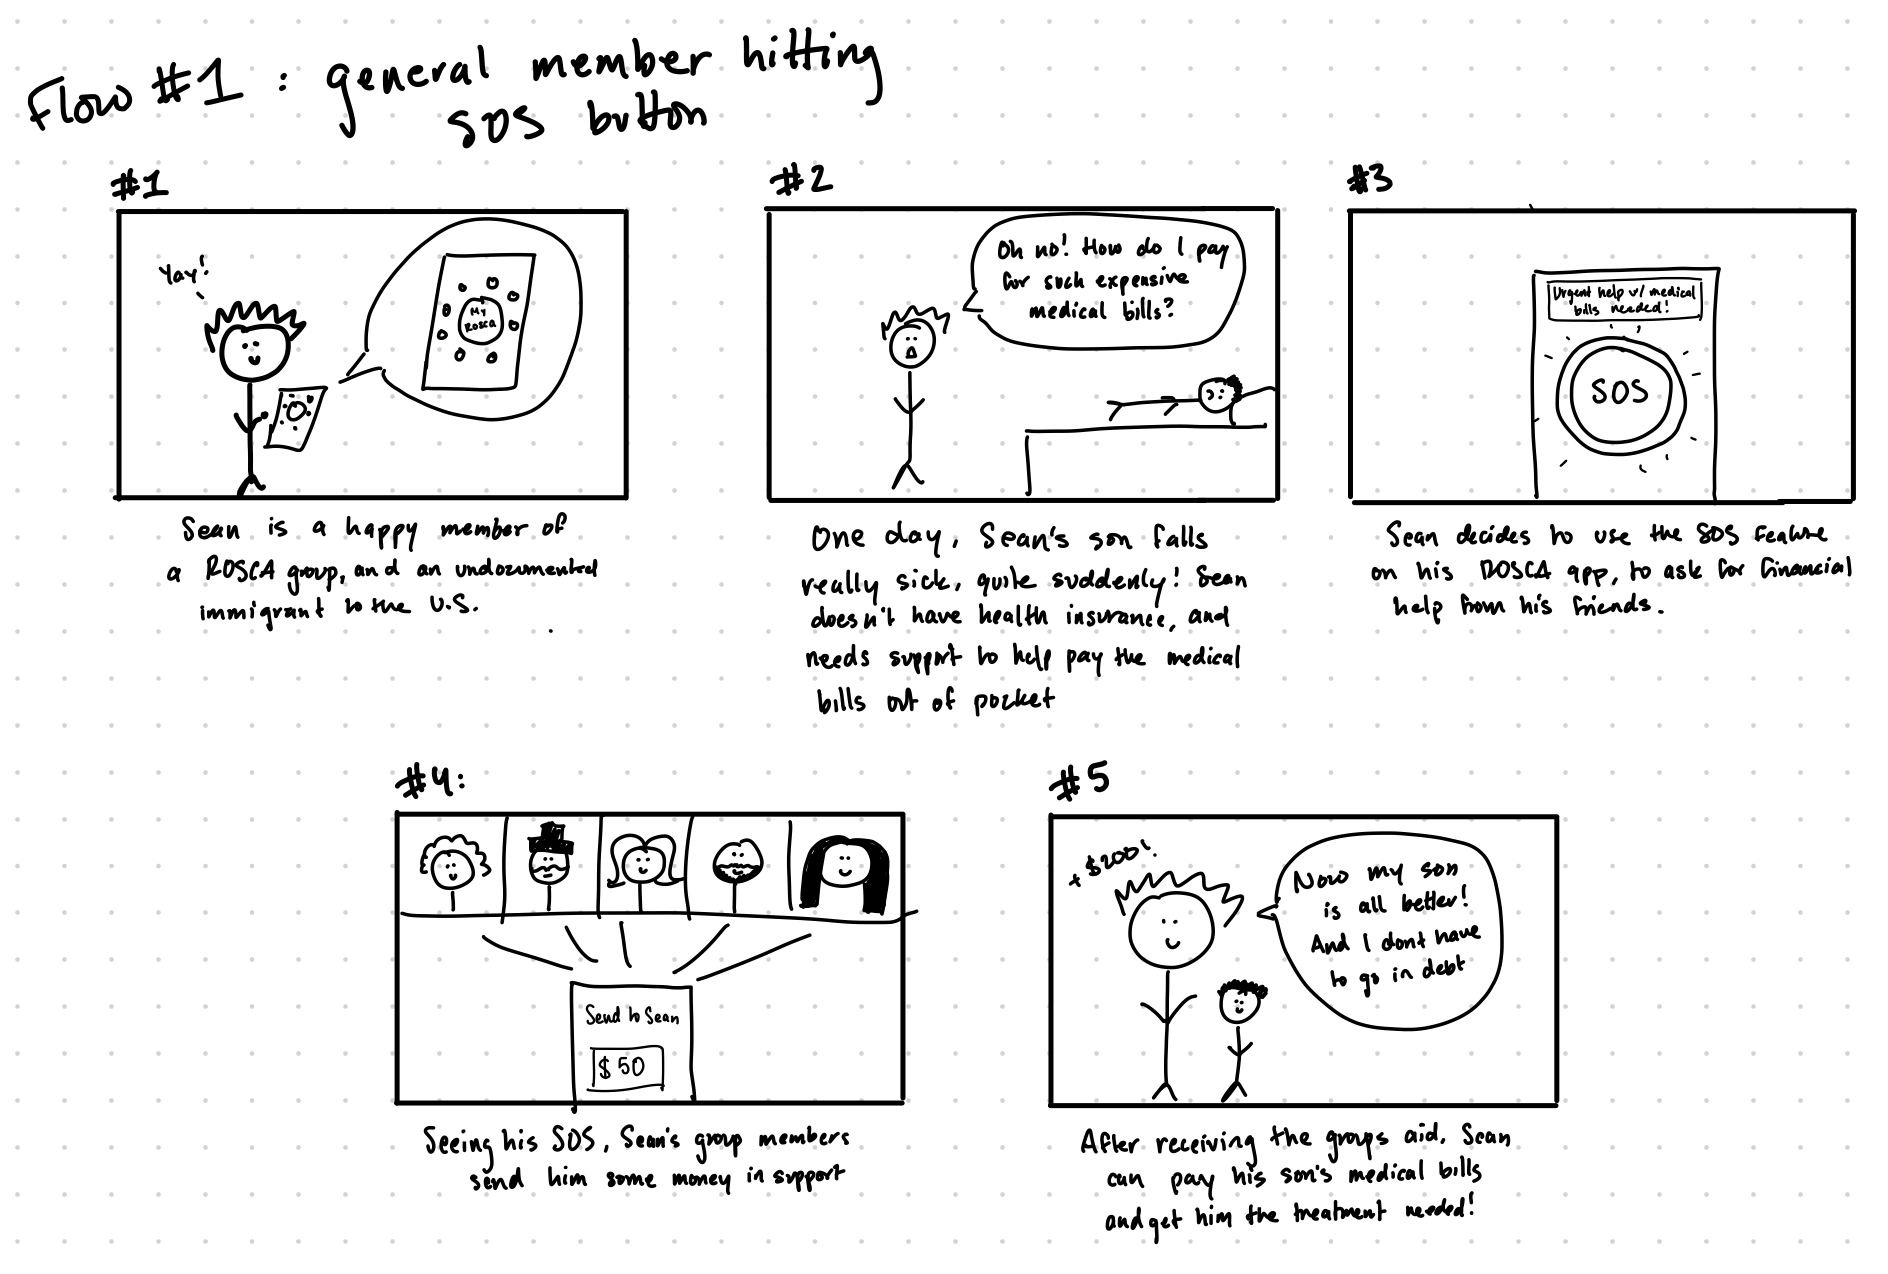 Flow #1 : general member hitting
SOS button
#1
Yay!
My
ROSCA
Sean is a happy member of
a ROSCA group, and an undocumented
immigrant to the U.S.
#2
Oh no! How do I pay
for such expensive
medical bills?
One day, Sean's son falls
really sick, quite suddenly! Sean
doesn't have health insurance, and
needs support to help pay the medical
bills out of pocket
#3
Urgent help w/ medical
bills needed!
SOS
Sean decides to use the SOS feature
on his ROSCA app, to ask for financial
help from his friends.
#4:
Send to Sean
$50
Seeing his SOS, Sean's group members
send him some money in support
#5
+ $200!
Now my son
is all better!
And I dont have
to go in debt
After receiving the groups aid, Sean
can pay his son's medical bills
and get him the treatment needed!